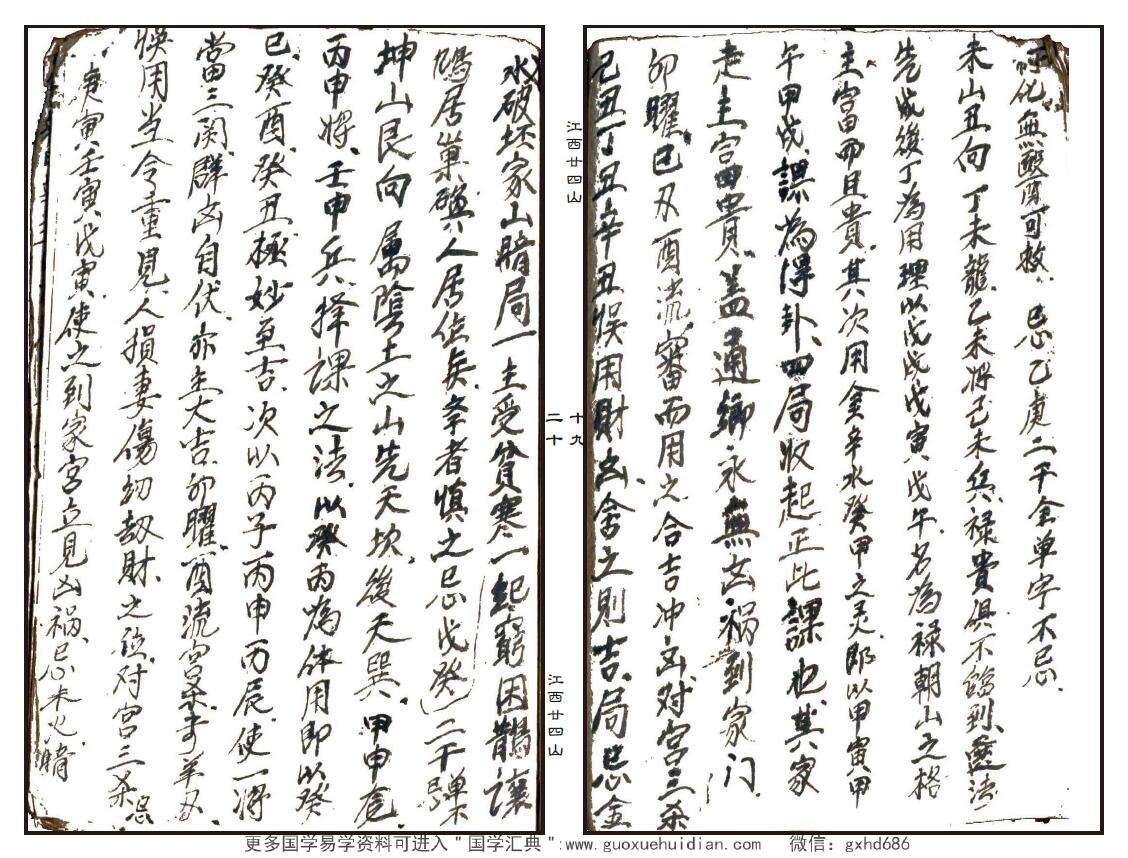 时化無醫可救 忌乙庚二干全单字不忌
未山丑向 丁未龍 乙未將己未兵 禄貴俱不臨到 選法
先戌後丁為用理以戊戌戊寅戊午 名為禄朝山之格
主富而且貴 其次用金辛水癸甲之灵 郎以甲寅甲
午甲戌 課為得卦 四局收起正此課也 其家
走主富四貴 盖通鄉永無凶祸到家门
卯曜巳刃酉流審而用之合吉冲凶对宮三杀
己丑丁丑辛丑悮用財凶舍之則吉 局忌金
水破坯家山暗局一主受貧寒一起窮困鵲讓
鳩居巢礖人居住矣 孝者慎之忌戊癸二干弹
坤山艮向 属陰土之山先天坎 後天巽 甲申龙
丙申將 壬申兵 择課之法 以癸丙為体用即以癸
巳癸酉 癸丑極妙至吉 次以丙子丙申丙辰 使一浔
當三関 群凶自伏 亦主大吉 卯曜 酉流 羊刃
悮用当令重見 人損妻傷幼劫財之位 对宮三杀 忌
庚寅壬寅戊寅 使之到家宮立見凶祸 忌木火暗
江西廿四山
十九
二十
江西廿四山
更多国学易学资料可进入＂国学汇典＂:www.guoxuehuidian.com 微信：gxhd686